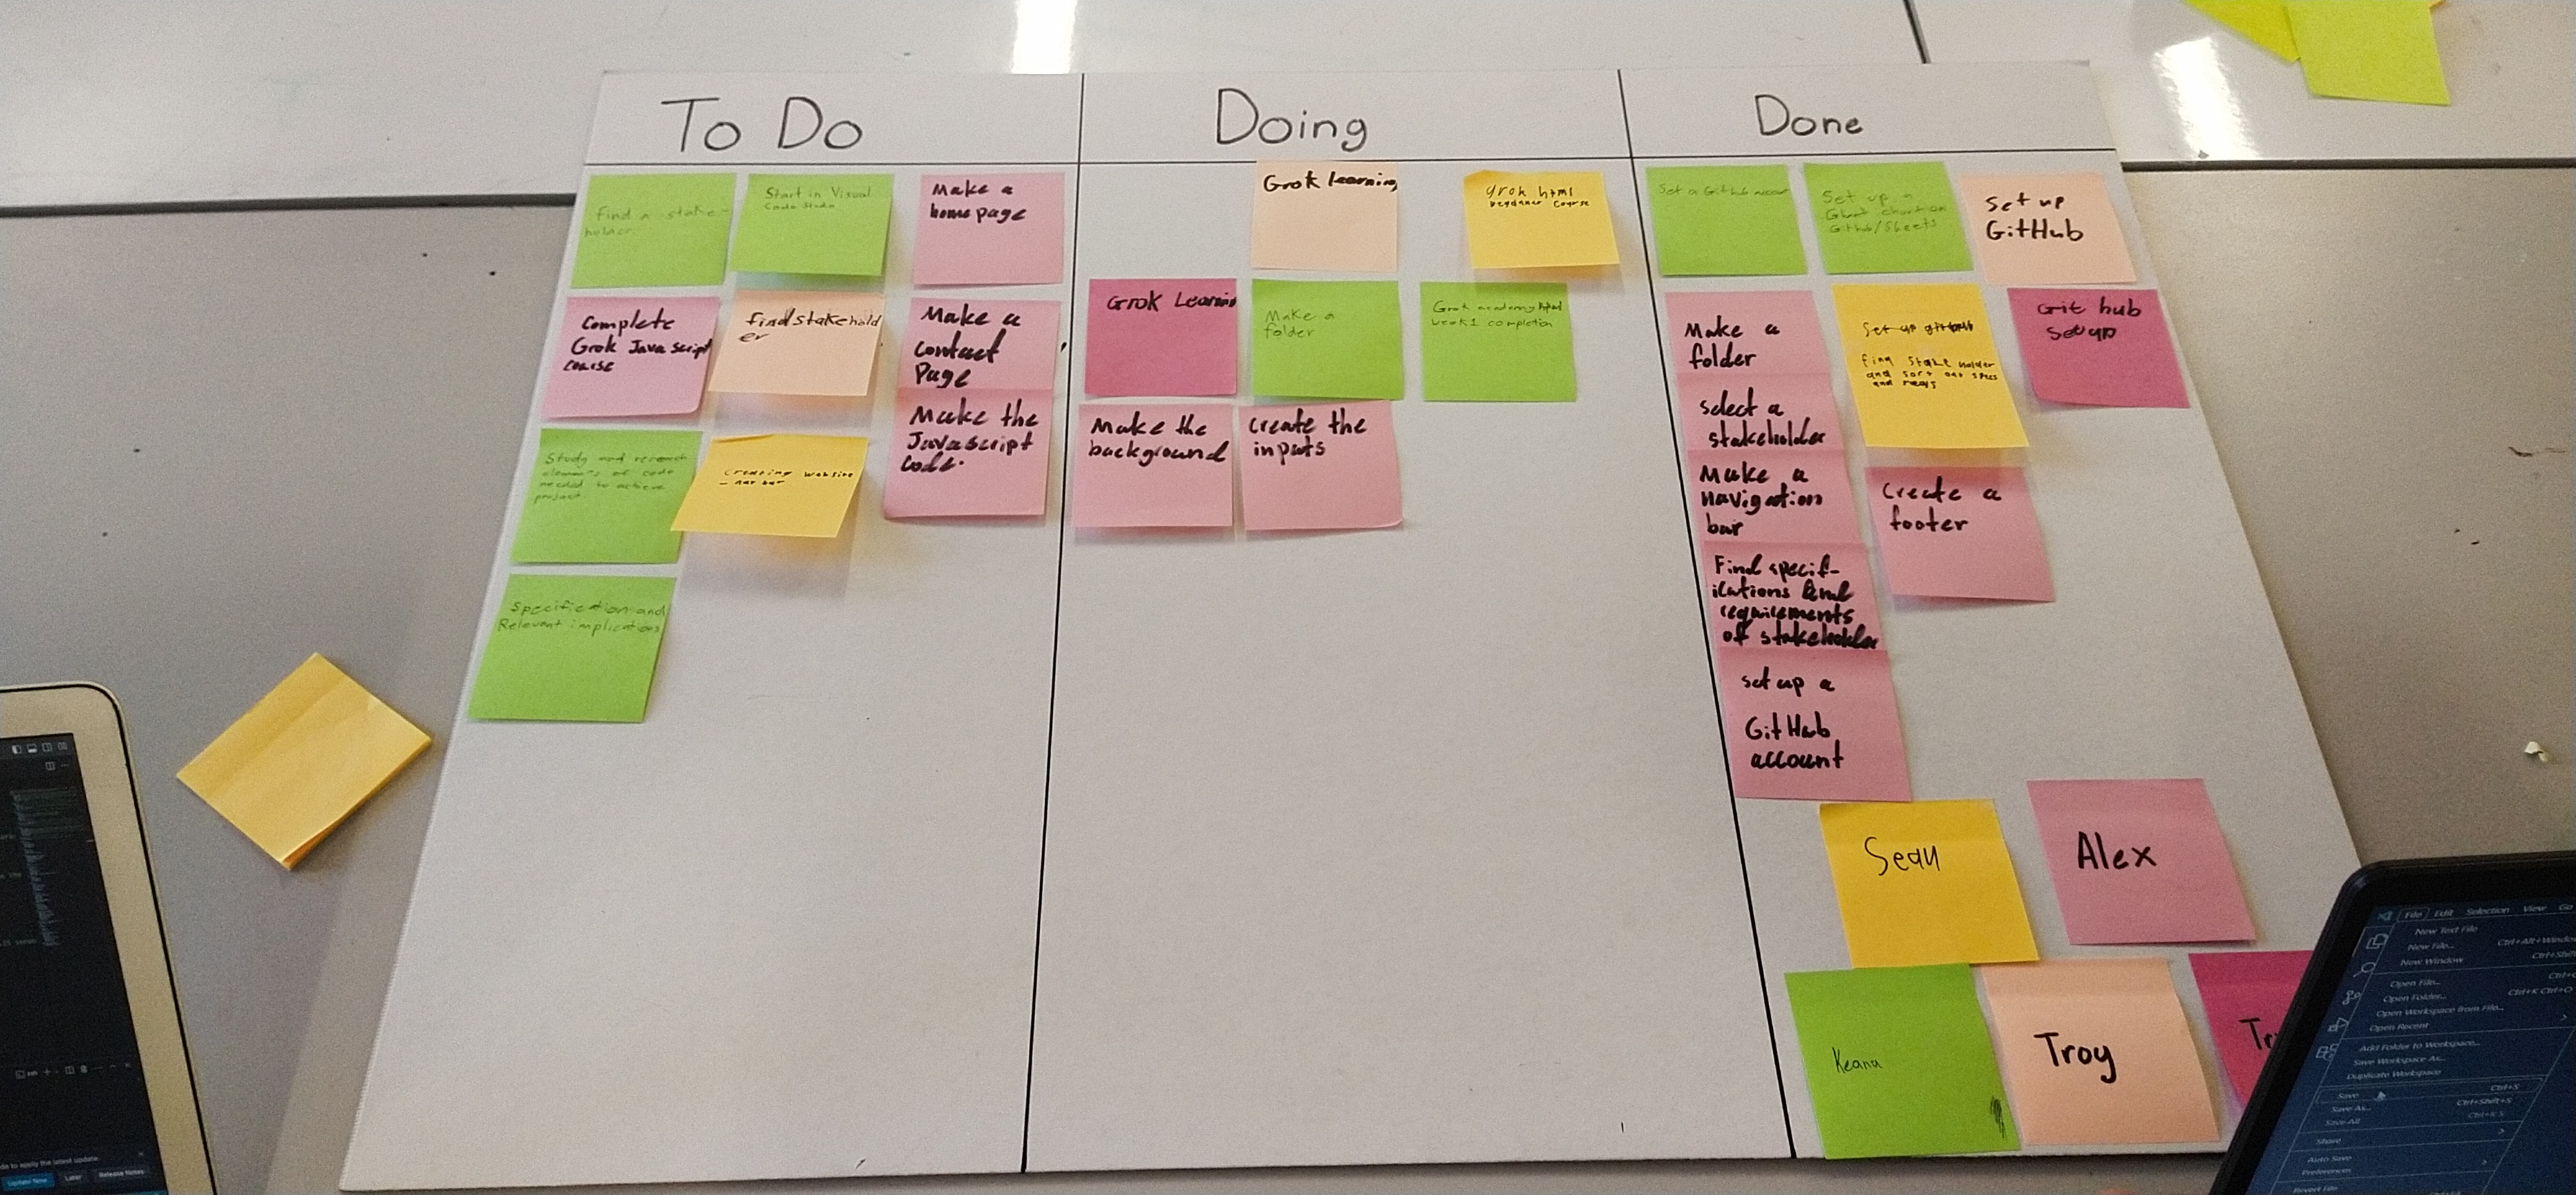 To Do
Doing
Done
Find a stake-
holder
Start in Visual
Code Studio
Make a
home page
Complete
Grok Java script
course
find stakehold
er
Make a
contact
Page
Make the
Javascript
code.
Study and research
elements of code
needed to achieve
product.
Creating website
- nav bar
Specification and
Relevant implications
Grok learning
grok html
course
Grok Learnin
Make a
folder
Grok academy
week 1 completion
Make the
background
create the
inputs
Set a GitHub
Set up a
chart on
Github/Sheets
Set up
GitHub
Make a
folder
Set up github
find stake holder
and sort out specs
and
Git hub
setup
select a
stakeholder
Make a
navigation
bar
Create a
footer
Find specif-
ications and
requirements
of stakeholder
set up a
GitHub
account
Sean
Alex
Keana
Troy
Tr
File Edit Selection View Go
New Text File
New File...
New Window
Open File...
Open Folder...
Open Workspace from File...
Open Recent
Add Folder to Workspace...
Save Workspace As...
Duplicate Workspace
Save Ctrl+S
Save As... Ctrl+Shift+S
Save All
Share
Auto Save
Preferences
to apply the latest update.
Update Now Later Release Notes